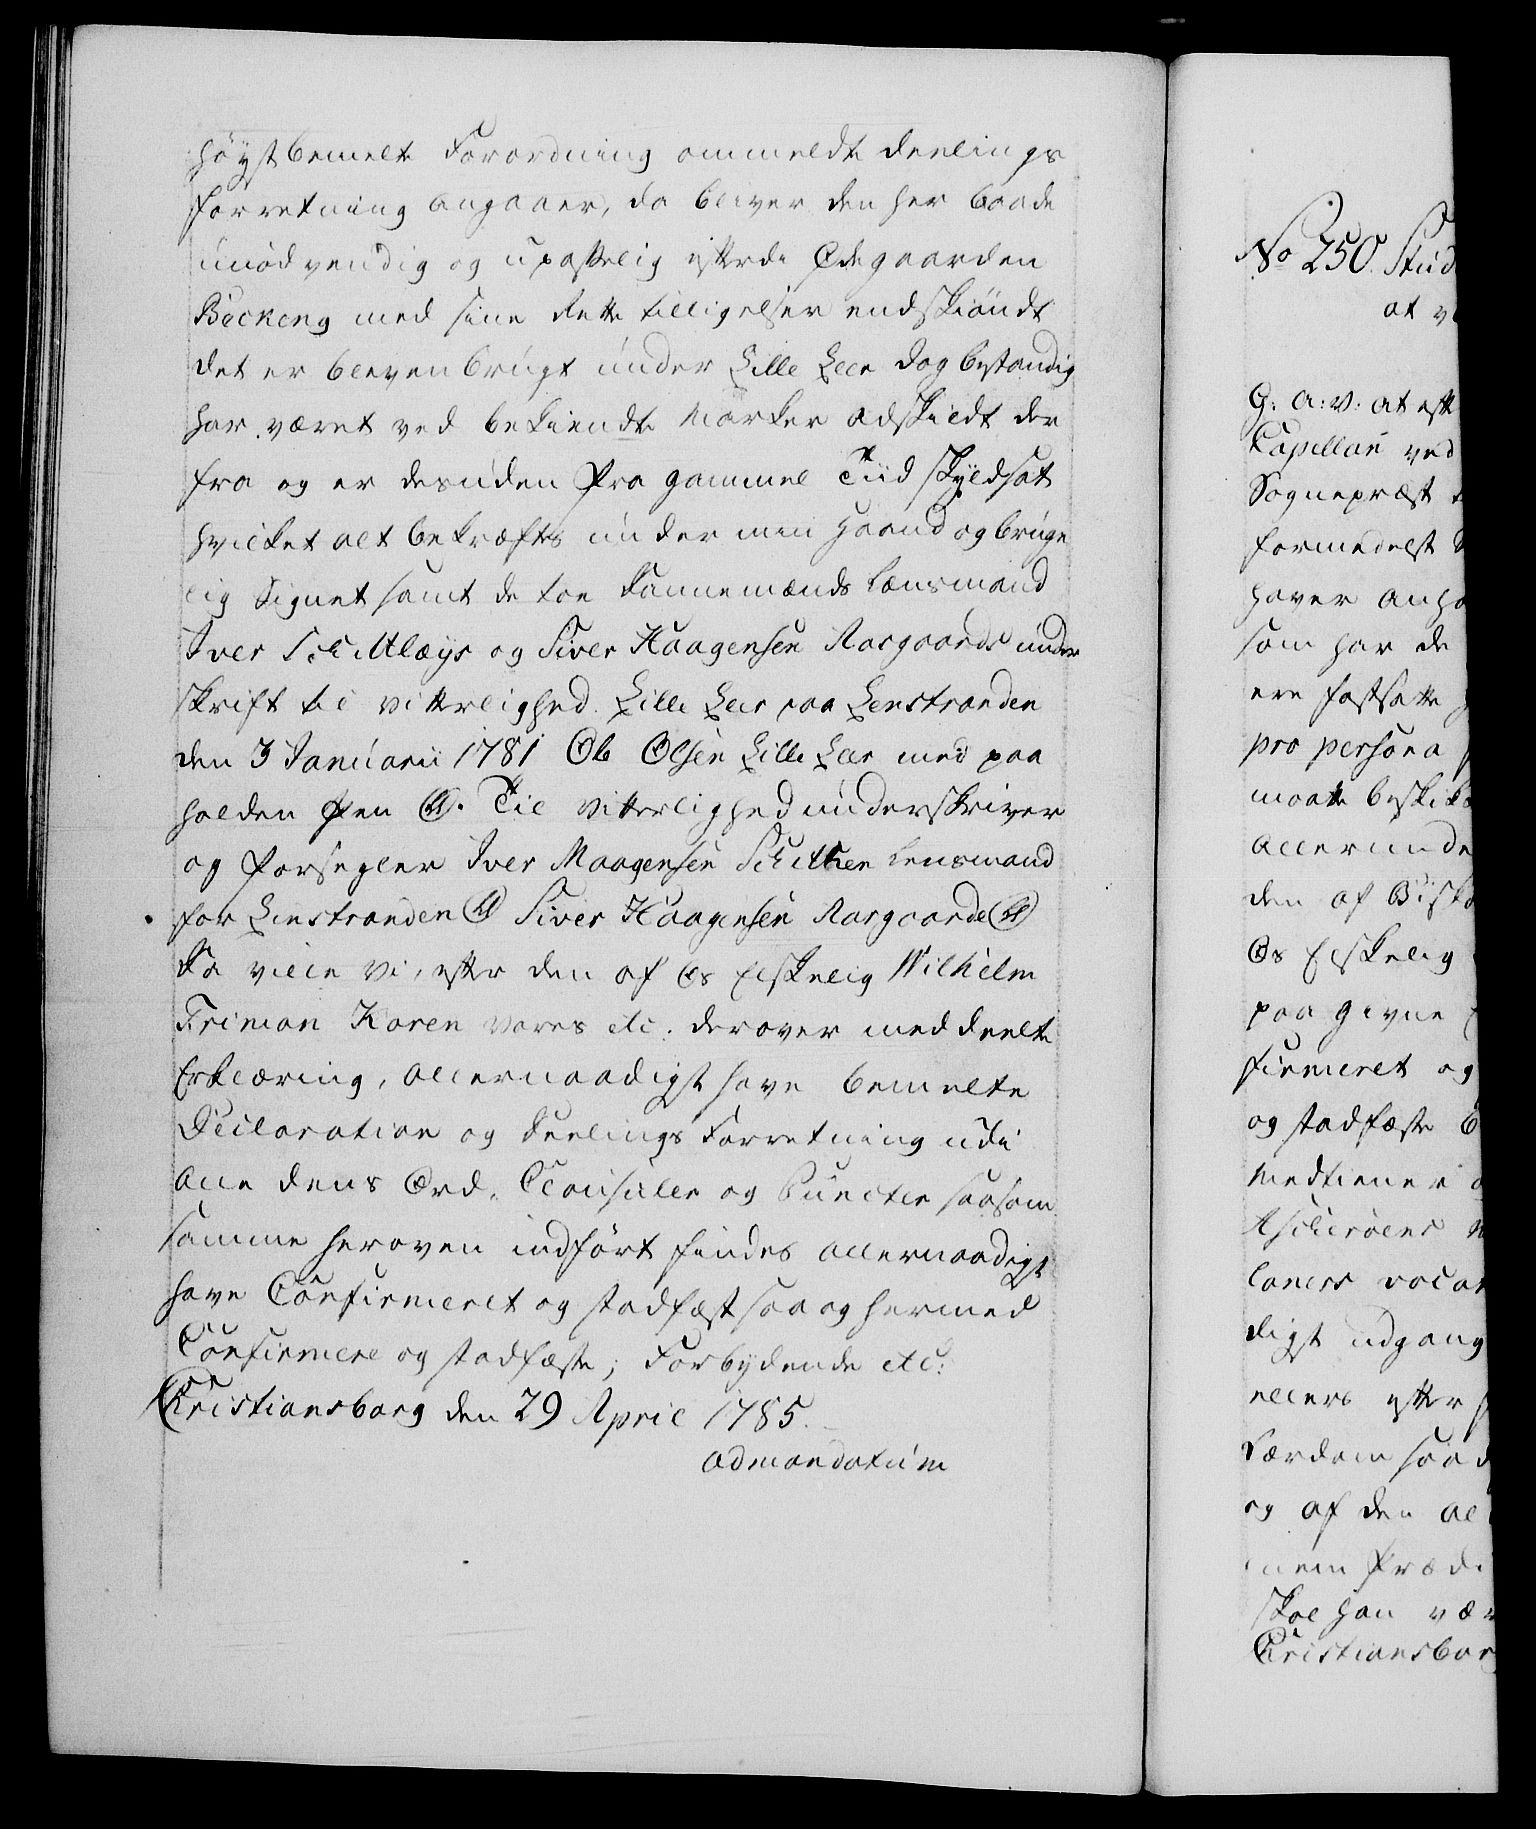 høystbemelte Forordning ommeldte Deelings
forretning angaaer, da bliver den her baade
unødvendig og upasselig efterdi Ødegaarden
Beckeng med sine rette tilligelser endskiøndt
det er bleven brugt under Lille Leer dog bestandig
har været ved bekiendte Marker adskildt der
fra og er desuden fra gammel Tiid skyldsat
hvilket alt bekræftes under min Haand og bruge
lig Signet samt de toe Dannemænds Lænsmand
Iver og Siver Haagensen Aasgaards under
skrift til vitterlighed. Lille Leer paa Leenstranden
den 3 Januarii 1781 Ole Olsen Lille Leer med paa
holden Pen. Til Vitterlighed underskriver
og forsegler Iver Maagensen Schitken Lensmand
for Leenstranden Siver Haagensen Aasgaarde
Da ville Vi, efter den af Os Elskelig Wilhelm
Friman Koren Vores etc. derover meddeelte
Erklæring, allernaadigst have bemelte
Declaration og Deelings Forretning udi
alle dens Ord, Clausuler og Puncter saasom
samme heroven indført findes allernaadigst
have Confirmeret og stadfæst saa og hermed
Confirmere og stadfæste; Forbydende etc:
Christiansborg den 29 April 1785.
ad mandatum
No 250. Stud
at v
G: A: V: at eft
Capellan ved
Sognepræst
formedelst
haver anho
som har de
ere fastsatte
pro persona
maatte beskik
allerunde
den af Bisko
Os Elskelig
paa givne
firmeret og
og stadfæste
Medtiener
laners vocat
digst udgang
ellers efter
Lærdom saa
og af den al
nem Prædi
skal han vær
Christiansbor